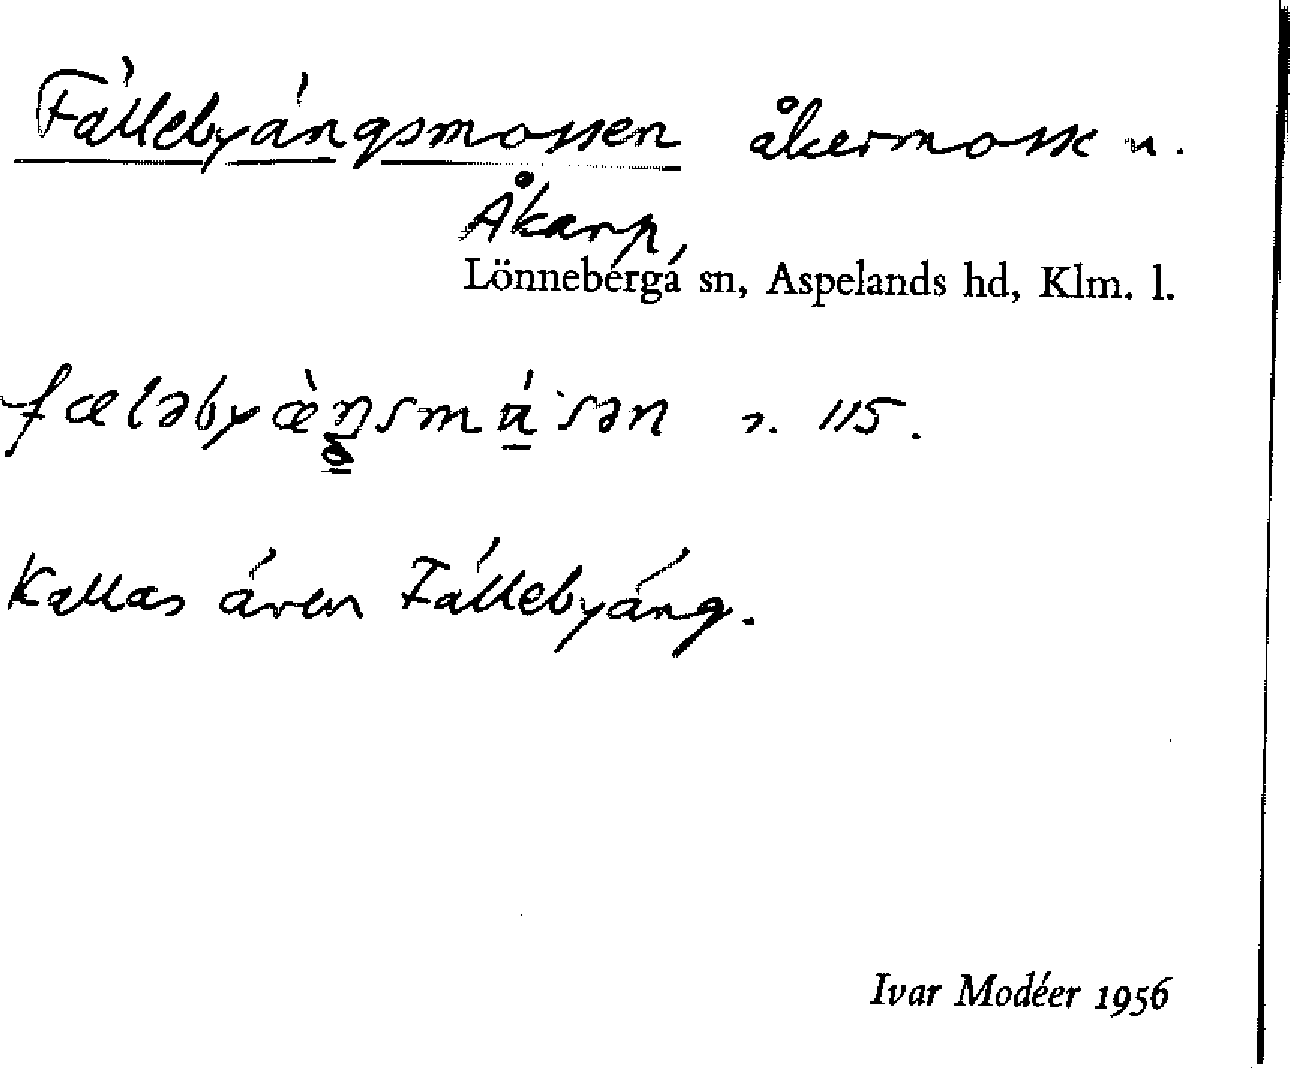 Fällebyängsmossen åkermosse u.
Åkarp,
Lönneberga sn, Aspelands hd, Klm. l.
fæləbyæ̀ŋsmú̱sən s. 115.
Kallas även Fällebyäng.
Ivar Modéer 1956